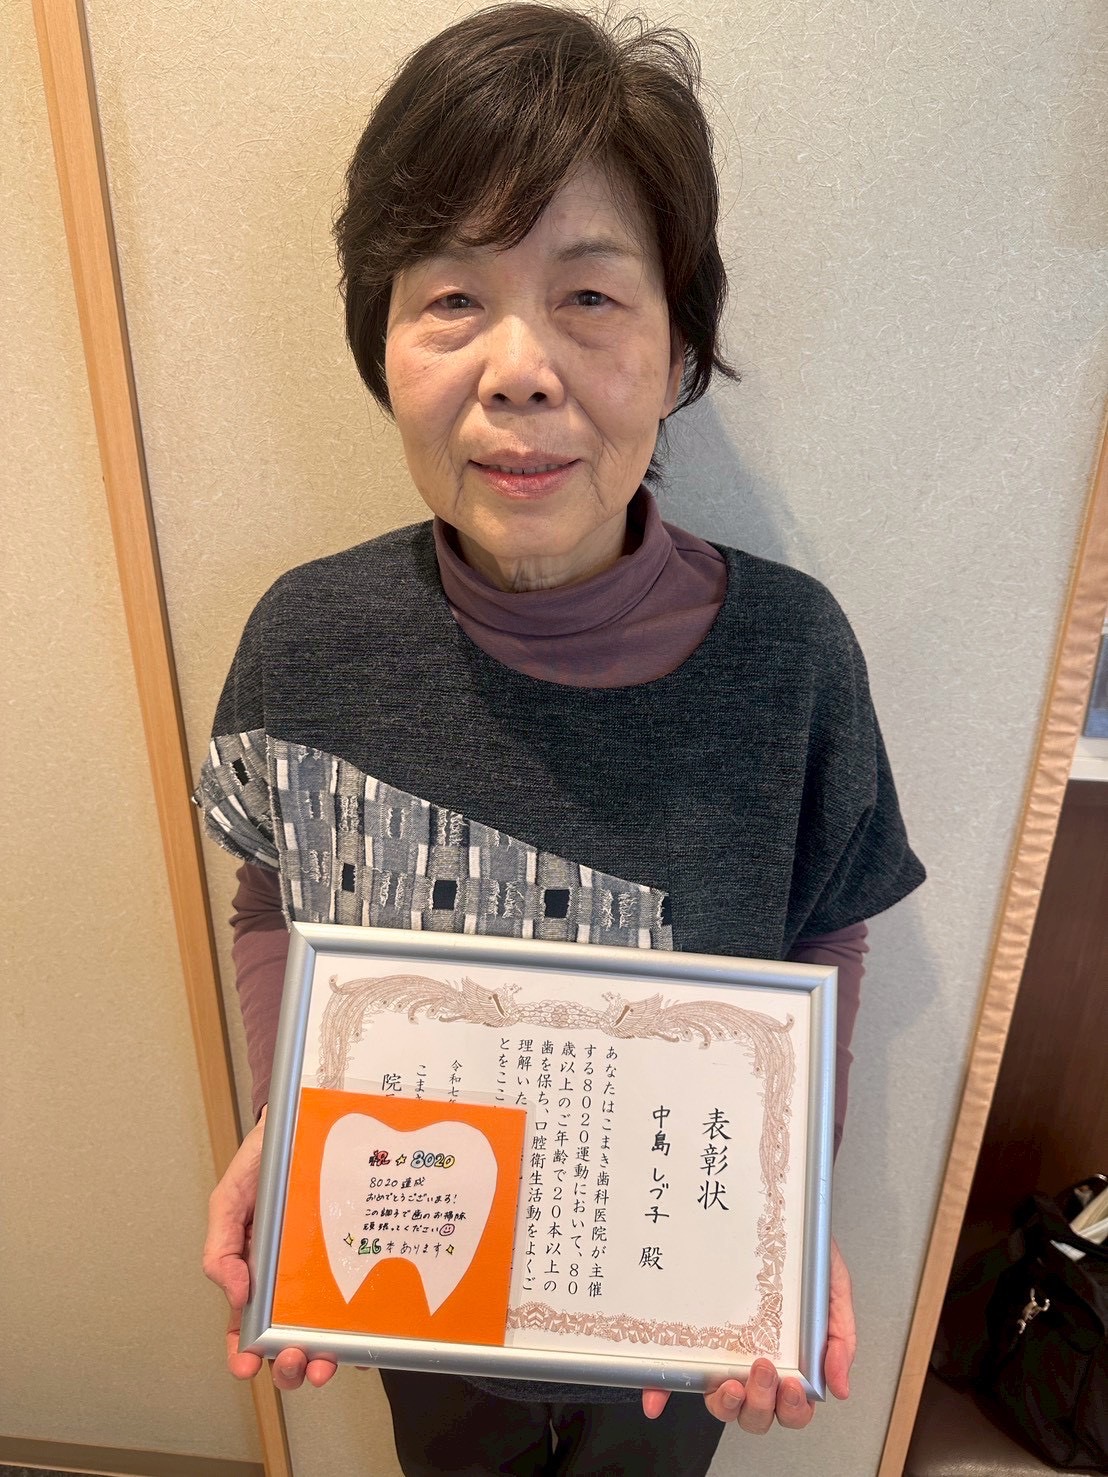 表彰状
中島しづ子 殿
あなたはこまき歯科医院が主催
する8020運動において、80
歳以上のご年齢で20本以上の
歯を保ち、口腔衛生活動をよくご
理解いた
とをここ
令和七年
こまき
院
祝 8020
8020達成
おめでとうございます!
この調子で歯のお掃除
頑張ってください
26本あります